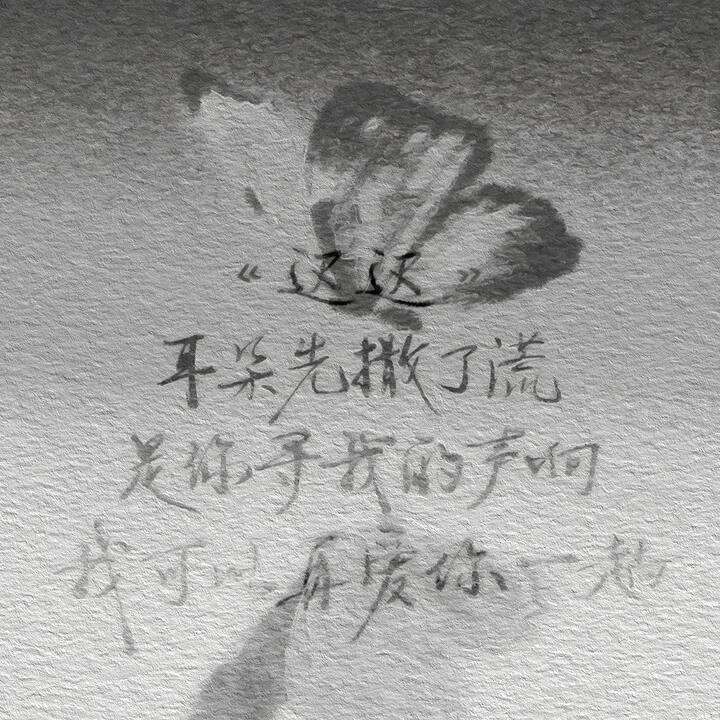 《迟迟》
耳朵先撒了谎
是你寻我的声啊
我可以再爱你一趟